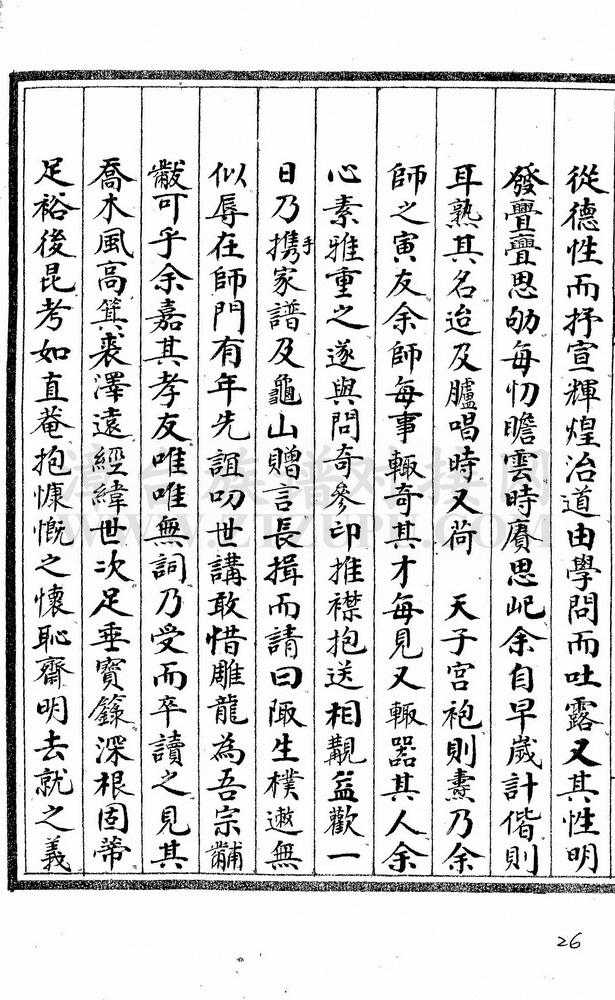 從德性而抒宣輝煌治道由學問而吐露又其性明
發亹亹思劬每忉瞻雲時賡思屺余自早歲計偕則
耳熟其名迨及臚唱時又荷　天子宮袍則燾乃余
師之寅友余師每事輒奇其才每見又輒器其人余
心素雅重之遂與問奇參印推襟抱送相覯益歡一
日乃携手家譜及龜山贈言長揖而請曰陬生樸遬無
似辱在師門有年先誼叨世講敢惜雕龍為吾宗黼
黻可乎余嘉其孝友唯唯無詞乃受而卒讀之見其
喬木風高箕裘澤遠經緯世次足垂寶籙深根固蒂
足裕後昆考如直菴抱慷慨之懷恥齋明去就之義
26
WWW.ZTZUPU.COM